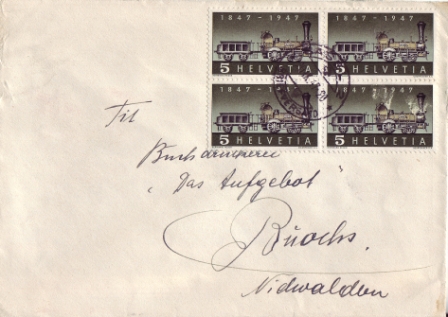 1847 - 1947
5 HELVETIA
1847 - 1947
5 HELVETIA
1847 - 1947
5 HELVETIA
1847 - 1947
5 HELVETIA
Tit
Buchdruckerei
"Das Aufgebot"
Buochs.
Nidwalden